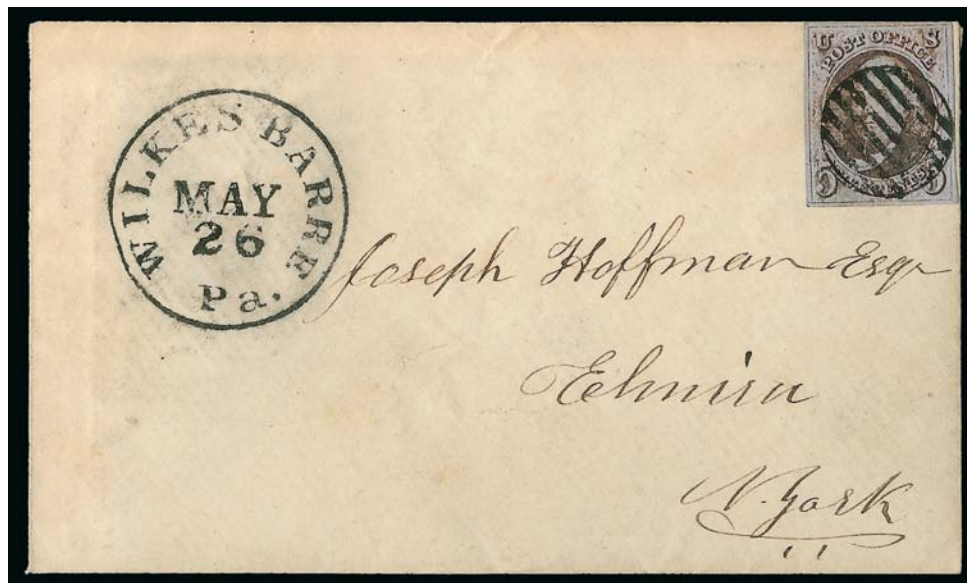 WILKES BARRE
MAY
26
Pa.
U S
POST OFFICE
Joseph Hoffman Esqr
Elmira
N. York